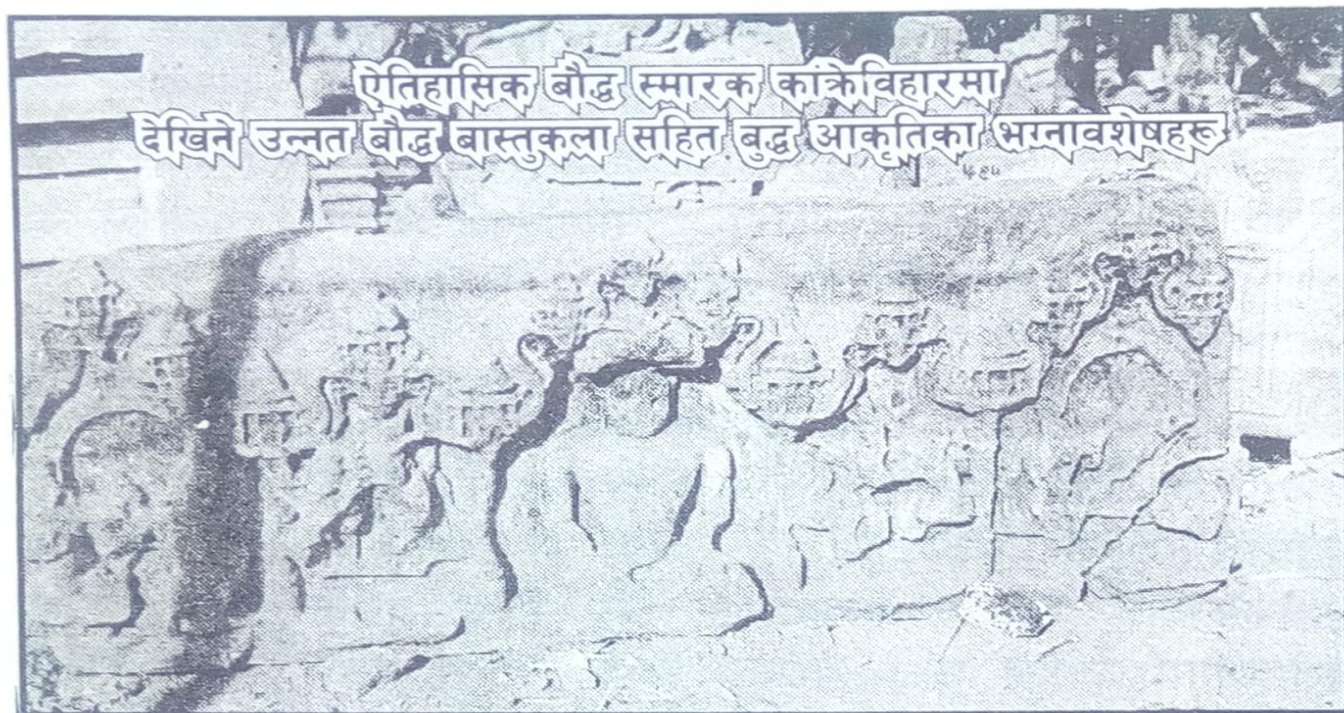 ऐतिहासिक बौद्ध स्मारक कांक्रेविहारमा
देखिने उन्नत बौद्ध बास्तुकला सहित बुद्ध आकृतिका भग्नावशेषहरू
५९५